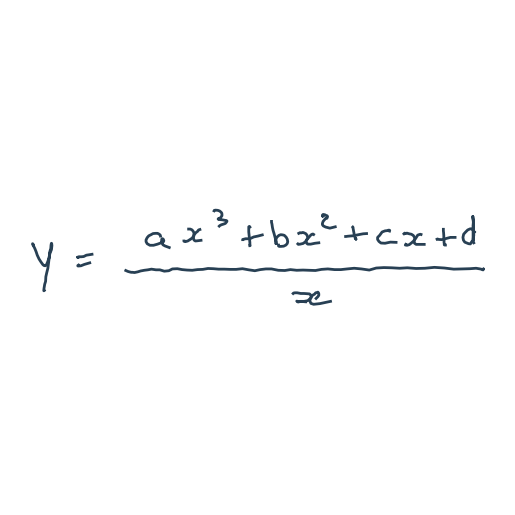 y = (ax³ + bx² + cx + d) / x